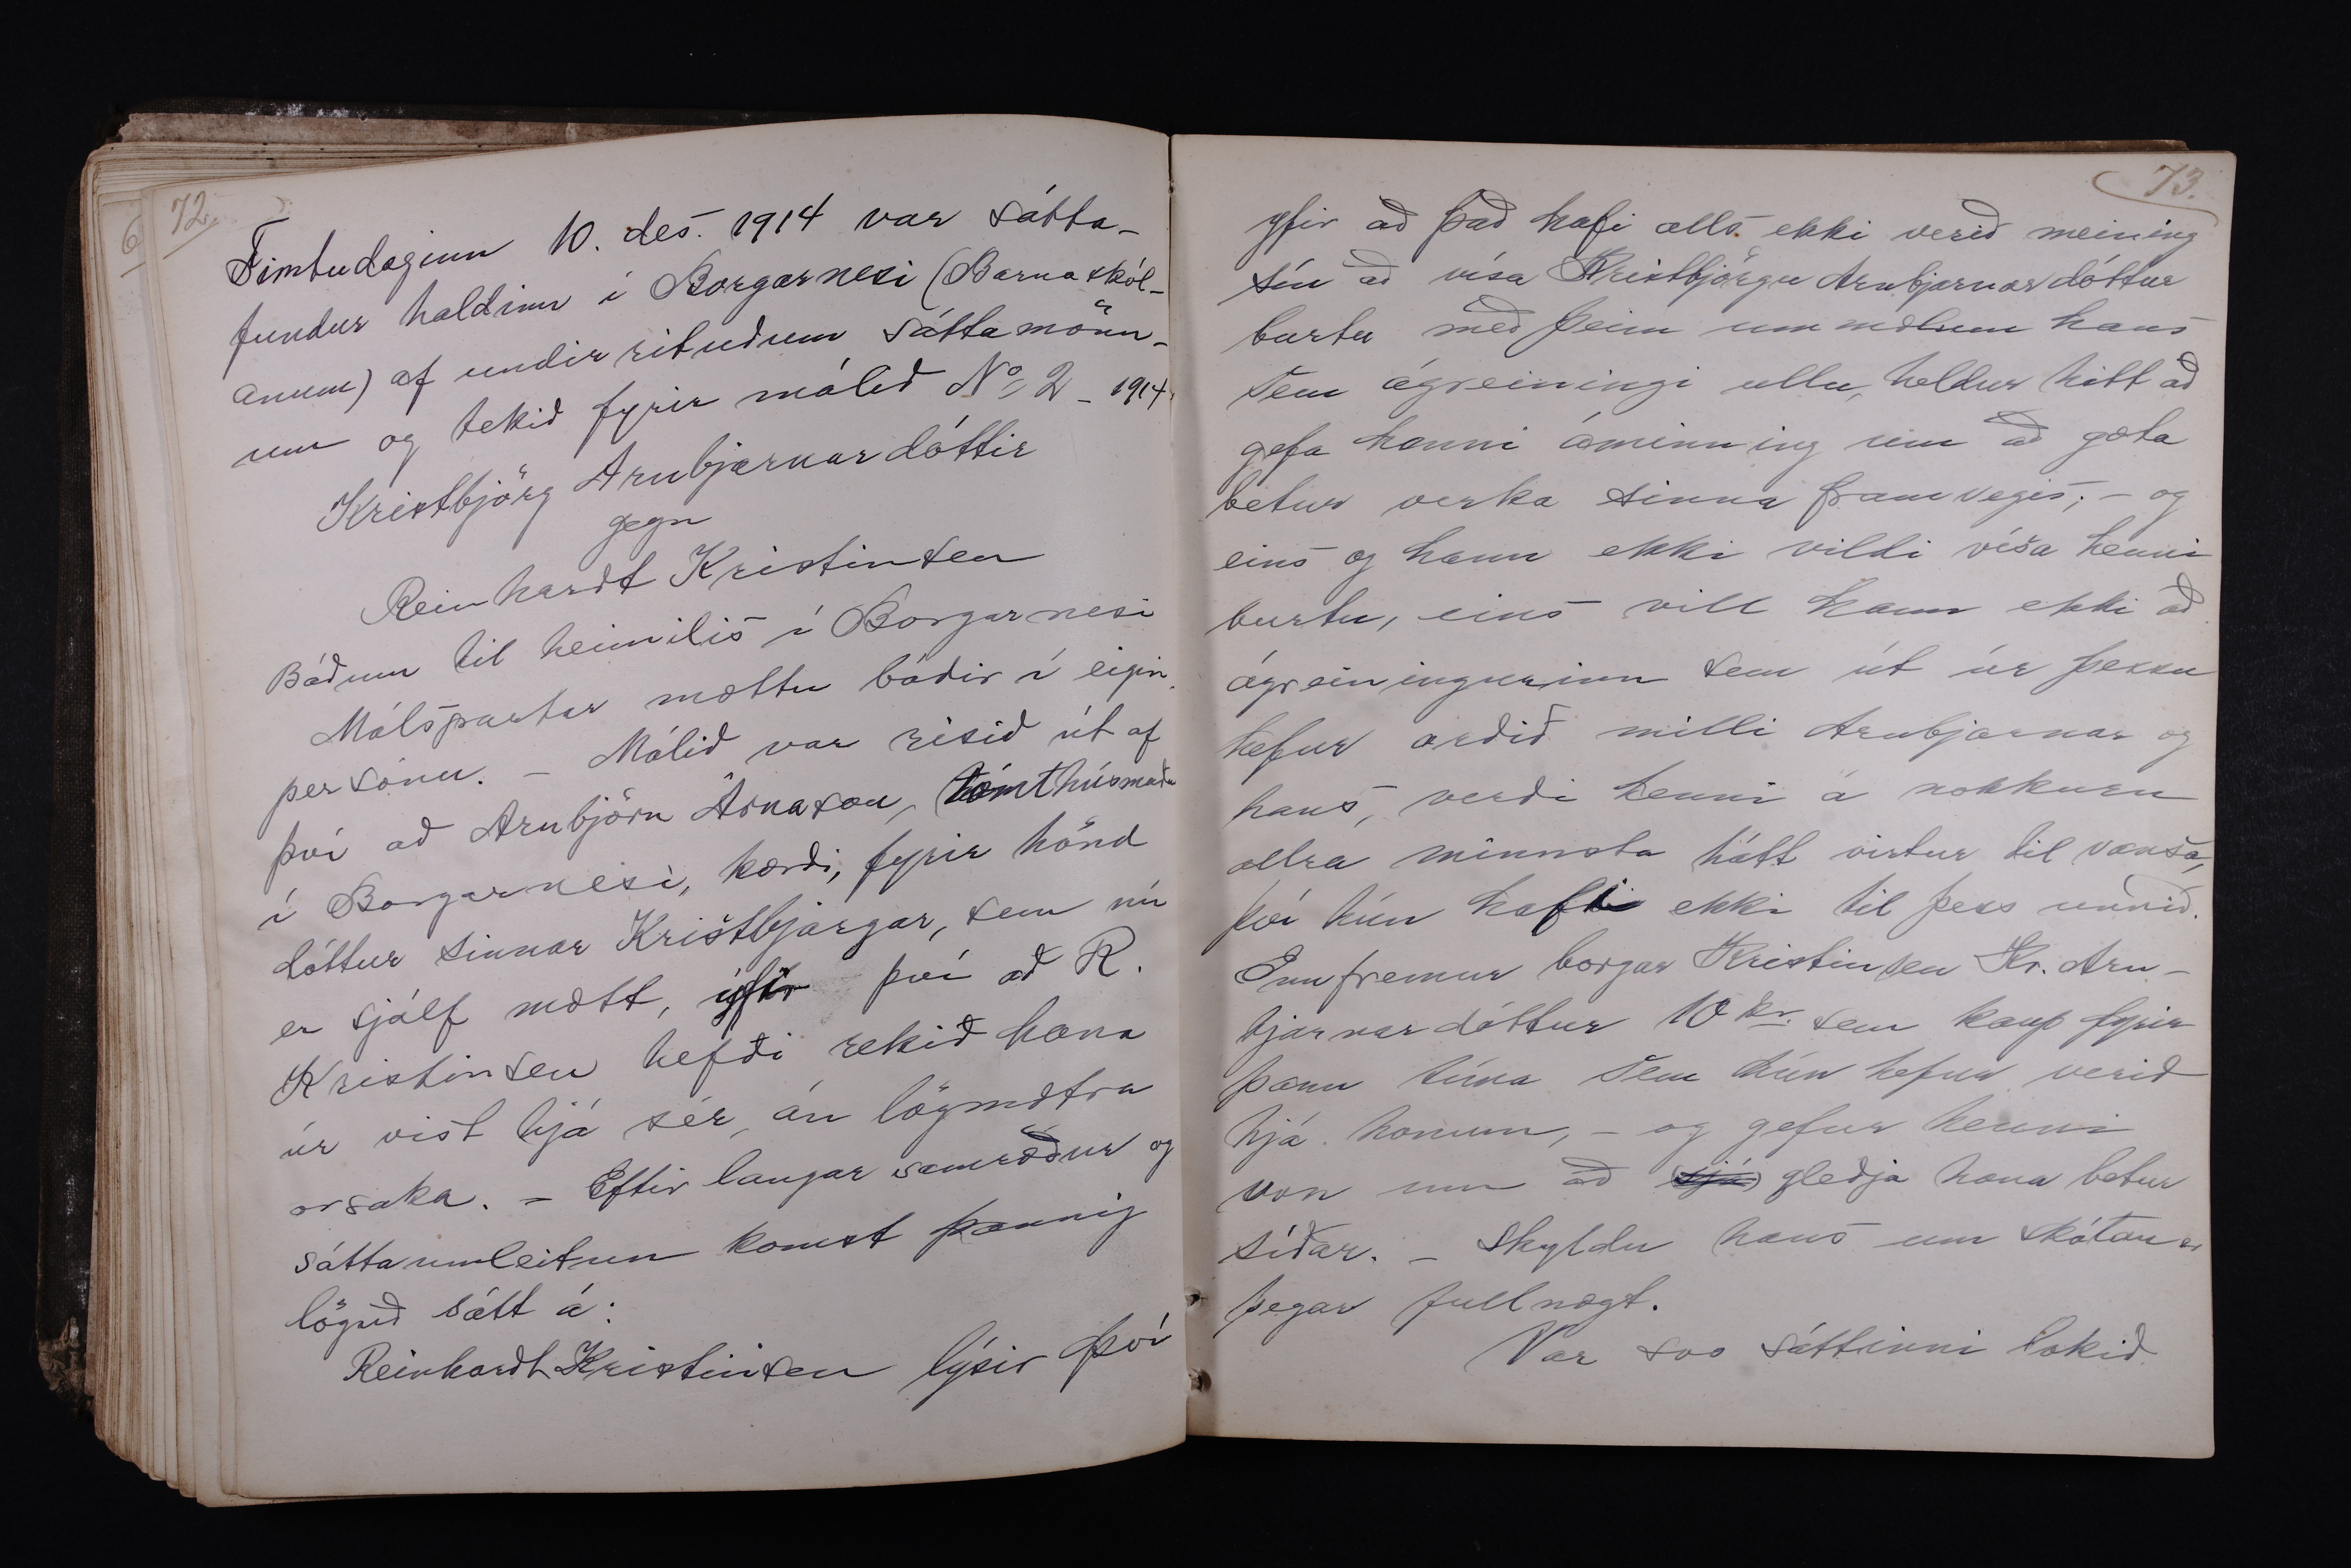 72.
Fimtudaginn 10. des. 1914 var sátta-
fundur haldinn í Borgarnesi (Barnaskól-
anum) af undirrituðum sáttamönn-
um og tekið fyrir málið No 2 - 1914.
Kristbjörg Arnbjarnardóttir
gegn
Reinhardt Kristinsen
Báðum til heimilis í Borgarnesi
Málspartar mættu báðir í eigin
persónu. - Málið var risið út af
því að Arnbjörn Árnason, tómthúsmaður
í Borgarnesi, kærði, fyrir hönd
dóttur sinnar Kristbjargar, sem nú
er sjálf mætt, yfir því að R.
Kristinsen hefði rekið hana
úr vist hjá sér, án lögmætra
orsaka. - Eftir langar samræður og
sáttaumleitun komst þannig
löguð sátt á:
Reinhardt Kristinsen lýsir því
73.
yfir að það hafi alls ekki verið meining
sín að vísa Kristbjörgu Arnbjarnardóttur
burtu með þeim ummælum hans
sem ágreiningi ullu, heldur hitt að
gefa henni áminning um að gæta
betur verka sinna framvegis; - og
eins og hann ekki vildi vísa henni
burtu, eins vill hann ekki að
ágreiningurinn sem út úr þessu
hefur orðið milli Arnbjarnar og
hans, verði henni á nokkurn
allra minnsta hátt virtur til vansa,
því hún hafi ekki til þess unnið.
Ennfremur borgar Kristinsen Kr. Arn-
bjarnardóttur 10 kr. sem kaup fyrir
þann tíma sem hún hefur verið
hjá honum, - og gefur henni
von um að sjá gleðja hana betur
síðar. - Skyldu hans um skótau er
þegar fullnægt.
Var svo sáttinni lokið